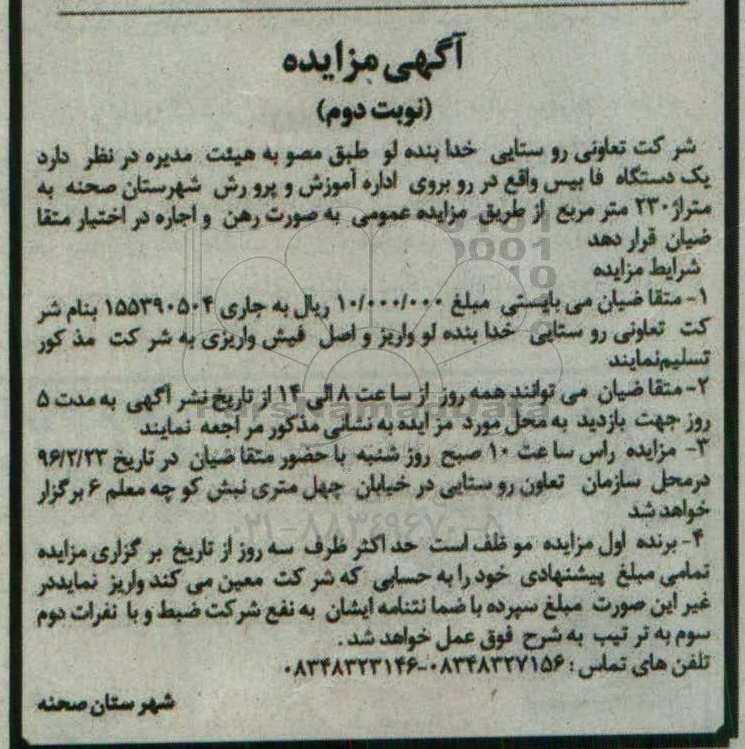 آگهی مزایده
(نوبت دوم)
شر کت تعاونی رو ستایی خدا بنده لو طبق مصو به هیئت مدیره در نظر دارد
یک دستگاه فا بیس واقع در رو بروی اداره آموزش و پرو رش شهرستان صحنه به
متراژ۲۳۰ متر مربع از طریق مزایده عمومی به صورت رهن و اجاره در اختیار متقا
ضیان قرار دهد
شرایط مزایده
۱- متقا ضیان می بایستی مبلغ ۱۰/۰۰۰/۰۰۰ ریال به جاری ۱۵۵۳۹۰۵۰۴ بنام شر
کت تعاونی رو ستایی خدا بنده لو واریز و اصل فیش واریزی به شر کت مذ کور
تسلیم‌نمایند
۲- متقا ضیان می توانند همه روز از سا عت ۸ الی ۱۴ از تاریخ نشر آگهی به مدت ۵
روز جهت بازدید به محل مورد مز ایده به نشانی مذکور مر اجعه نمایند
۳- مزایده راس سا عت ۱۰ صبح روز شنبه با حضور متقا ضیان در تاریخ ۹۶/۲/۲۳
درمحل سازمان تعاون رو ستایی در خیابان چهل متری نبش کو چه معلم ۶ برگزار
خواهد شد
۴- برنده اول مزایده مو ظف است حد اکثر ظرف سه روز از تاریخ بر گزاری مزایده
تمامی مبلغ پیشنهادی خود را به حسابی که شر کت معین می کند واریز نمایددر
غیر این صورت مبلغ سپرده با ضما نتنامه ایشان به نفع شرکت ضبط و با نفرات دوم
سوم به تر تیب به شرح فوق عمل خواهد شد .
تلفن های تماس : ۰۸۳۴۸۳۲۷۱۵۶-۰۸۳۴۸۳۲۳۱۴۶
شهرستان صحنه
۰۲۱-۸۸۳۴۹۶۷۰-۵